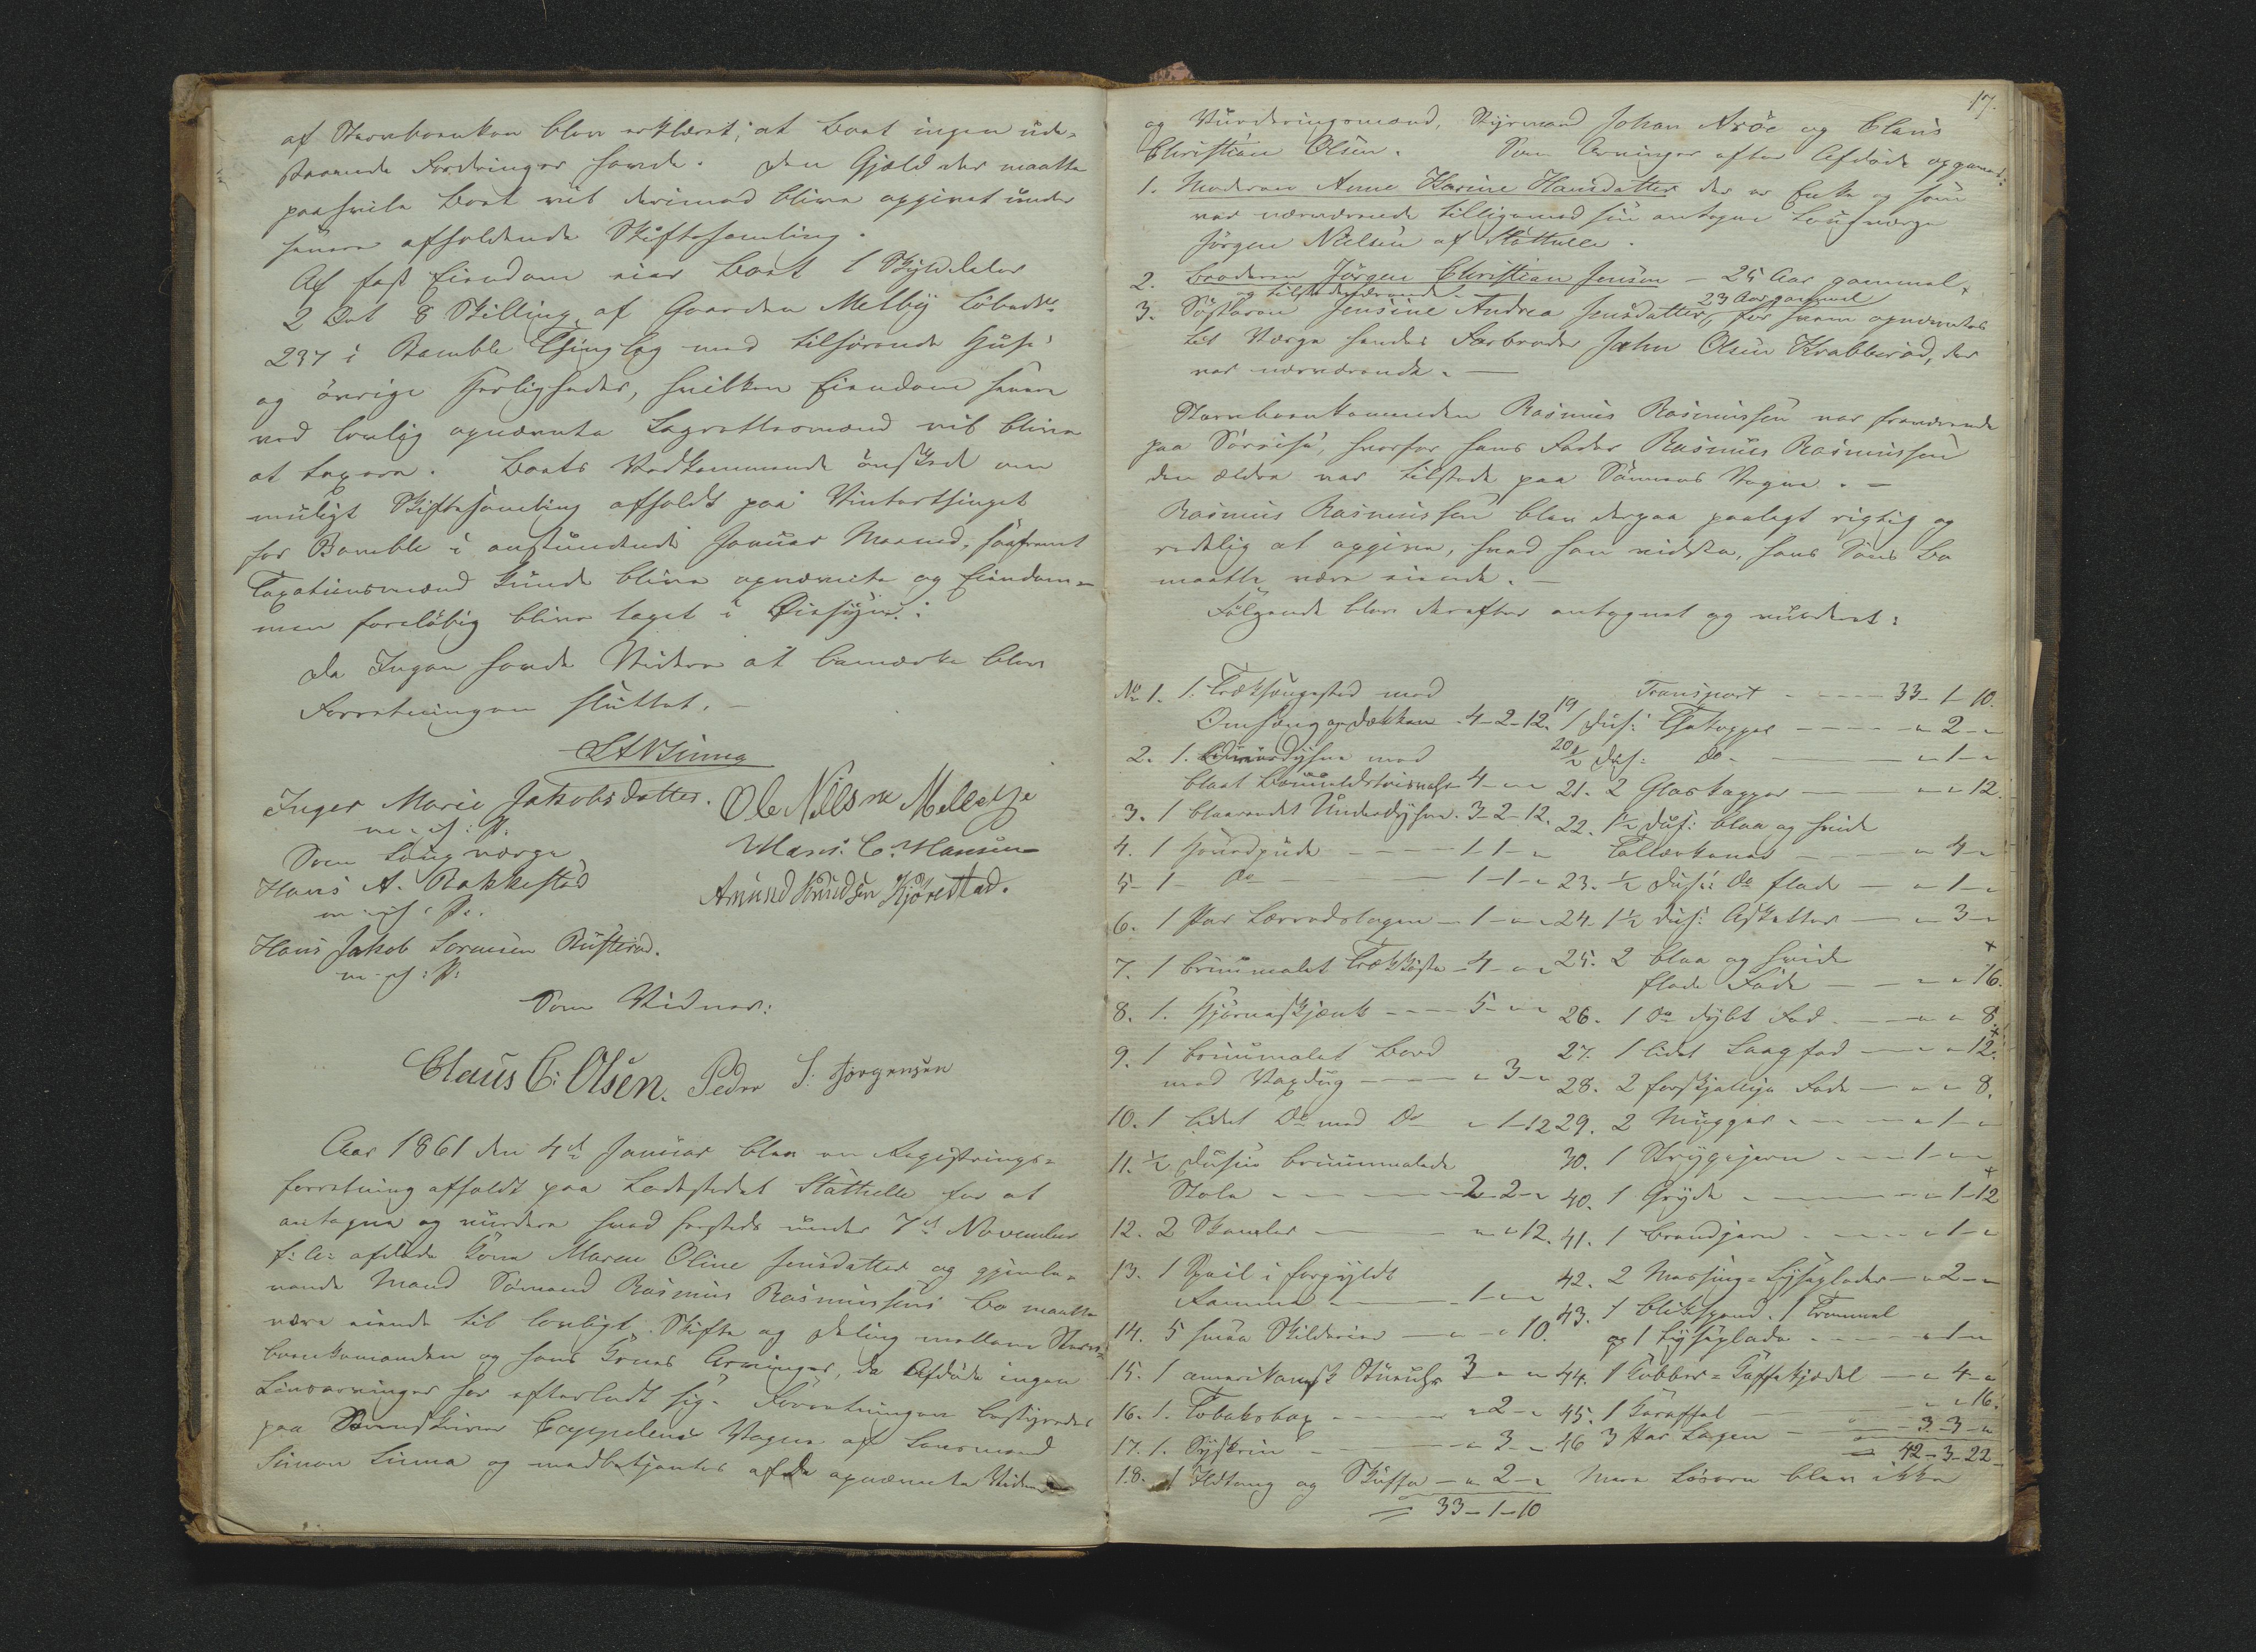 af Stervboenken blev erklæret, at Boet ingen ude-
staaende Fordringer havde. Den Gjæld der maatte
paahvile Boet vil derimod blive opgivet under
senere afholdende Skiftesamling.
Af fast Eiendom eier Boet 1 Skylddaler
2 Ort 8 Skilling af Gaarden Melby Løbe№
237 i Bamble Thinglag med tilhørende Huse
og øvrige Herligheder, hvilken Eiendom senere
ved lovlig opnævnte Lagrettesmænd vil blive
at taxere. Boets Vedkommende ønskede om
muligt Skiftesamling afholdt paa Vinterthinget
for Bamble i anstundende Januar Maaned, saafremt
Taxationsmænd kunde blive opnævnte og Eiendom-
men foreløbig blive taget i Øiesyn.
Da Ingen havde Videre at bemærke blev
Forretningen sluttet. —
Inger Marie Jakobsdatter. Ole Nilsen Melbye
m. p. P.
Som Laugværge Hans C. Hansen
Hans A. Rakkestad
m. p. P. Amund Knudsen Kjørestad.
Hans Jakob Sørensen Busterud.
m. p. P.
Som Vidner:
Claus C: Olsen. Peder S. Jørgensen
Aar 1861 den 4de Januar blev en Registrerings-
forretning afholdt paa Ladestedet Stathelle for at
antegne og vurdere hvad hersteds under 7de November
f: A: afdøde Kone Maren Oline Jensdatter og gjenle-
vende Mand Sømand Rasmus Rasmussens Bo maatte
være eiende til lovligt Skifte og Deling mellem Sterv-
boenkemanden og hans Kones Arvinger, da Afdøde ingen
Livsarvinger har efterladt sig. Forretningen bestyredes
paa Sorenskriver Cappelens Vegne af Lensmand
Simon Sinnæ og medbetjentes af de opnævnte Vidner
17.
og Vurderingsmænd, Styrmand Johan Arøe og Claus
Christian Olsen. Som Arvinger efter Afdøde opgaves:
1. Moderen Anne Karine Hansdatter der er Enke og som
var nærværende tilligemed sin antagne Laugværge
Jørgen Nielsen af Stathelle.
2. Broderen Jørgen Christian Jensen — 25 Aar gammel,
og tilstedeværende.
3. Søsteren Jensine Andrea Jensdatter, 23 Aar gammel for hvem opnævntes
til Værge hendes Farbroder Jahn Olsen Krabberød, der
var nærværende. —
Stervboenkemanden Rasmus Rasmussen var fraværende
paa Søreise, hvorfor hans Fader Rasmus Rasmussen
den ældre var tilstede paa Sønnens Vegne. —
Rasmus Rasmussen blev derpaa paalagt rigtig og
redelig at opgive, hvad han vidste, hans Søns Bo
maatte være eiende. —
Følgende blev derefter antegnet og vurderet:
№ 1. 1. Træksengested med
Omhæng og Dækken - 4-2-12.
2. 1. Dyne med
blaat Bomuldstrievaar 4 - " - "
3. 1 blaarandet Underdyne. 3-2-12.
4. 1 Hovedpude - - - 1-1-"
5. 1 do - 1-1-"
6. 1 Par Lærredslagen - 1-"-"
7. 1 bruunmalet Trækkiste - 4-"-"
8. 1. Hjørneskjænk - - - 5-"-"
9. 1 bruunmalet Bord
med Voxdug - - - " 3-"
10. 1 lidet do med do " 1-12
11. ½ Dusin bruunmalede
Stole - - - 2-2-"
12. 2 Skamler - "-"12.
13. 1 Speil i forgyldt
Ramme - 1-"-"
14. 5 smaa Skilderier - "-"10.
15. 1 amerikansk Stueuhr 3-"-"
16. 1. Tobaksbox - "2-"
17. 1. Syskrin - " 3-"
18. 1 Ildtang og Skuffe - " 2-"
= 33-1-10
Transport - - - 33-1-10.
19 1 Dus: Thekopper - - - " 2-"
20 ½ Dus: do - "-1-"
21. 2 Glaskopper - "-"12.
22. 1½ Dus: blaa og hvide
Tallerkener - " 4-"
23. ½ Dus: do flade - " 1-"
24. 1½ Dus: Asketter - " 3-"
25. 2 blaa og hvide
flade Fade - "-"16.
26. 1 do dybt Fad - "-" 8.
27. 1 lidet Laagfad - "-"12.
28. 2 forskjellige Fade - "-" 8.
29. 2 Mugger - " 1-"
30. 1 Strygejern - - 1-"
40. 1 Gryde - " 1-12
41. 1 Brandjern - - " 1-"
42. 2 Messing-Lyseplader - " 2-"
43. 1 Blikspand, 1 Trommel
og 1 Lyseplade - - " 1-"
44. 1 Kobber-Kaffekjedel - " 4-"
45. 1 Karaffel - "-"16.
46 3 Par Lagen - 3-3-"
= 42-3-22-
Mere Løsøre blev ikke